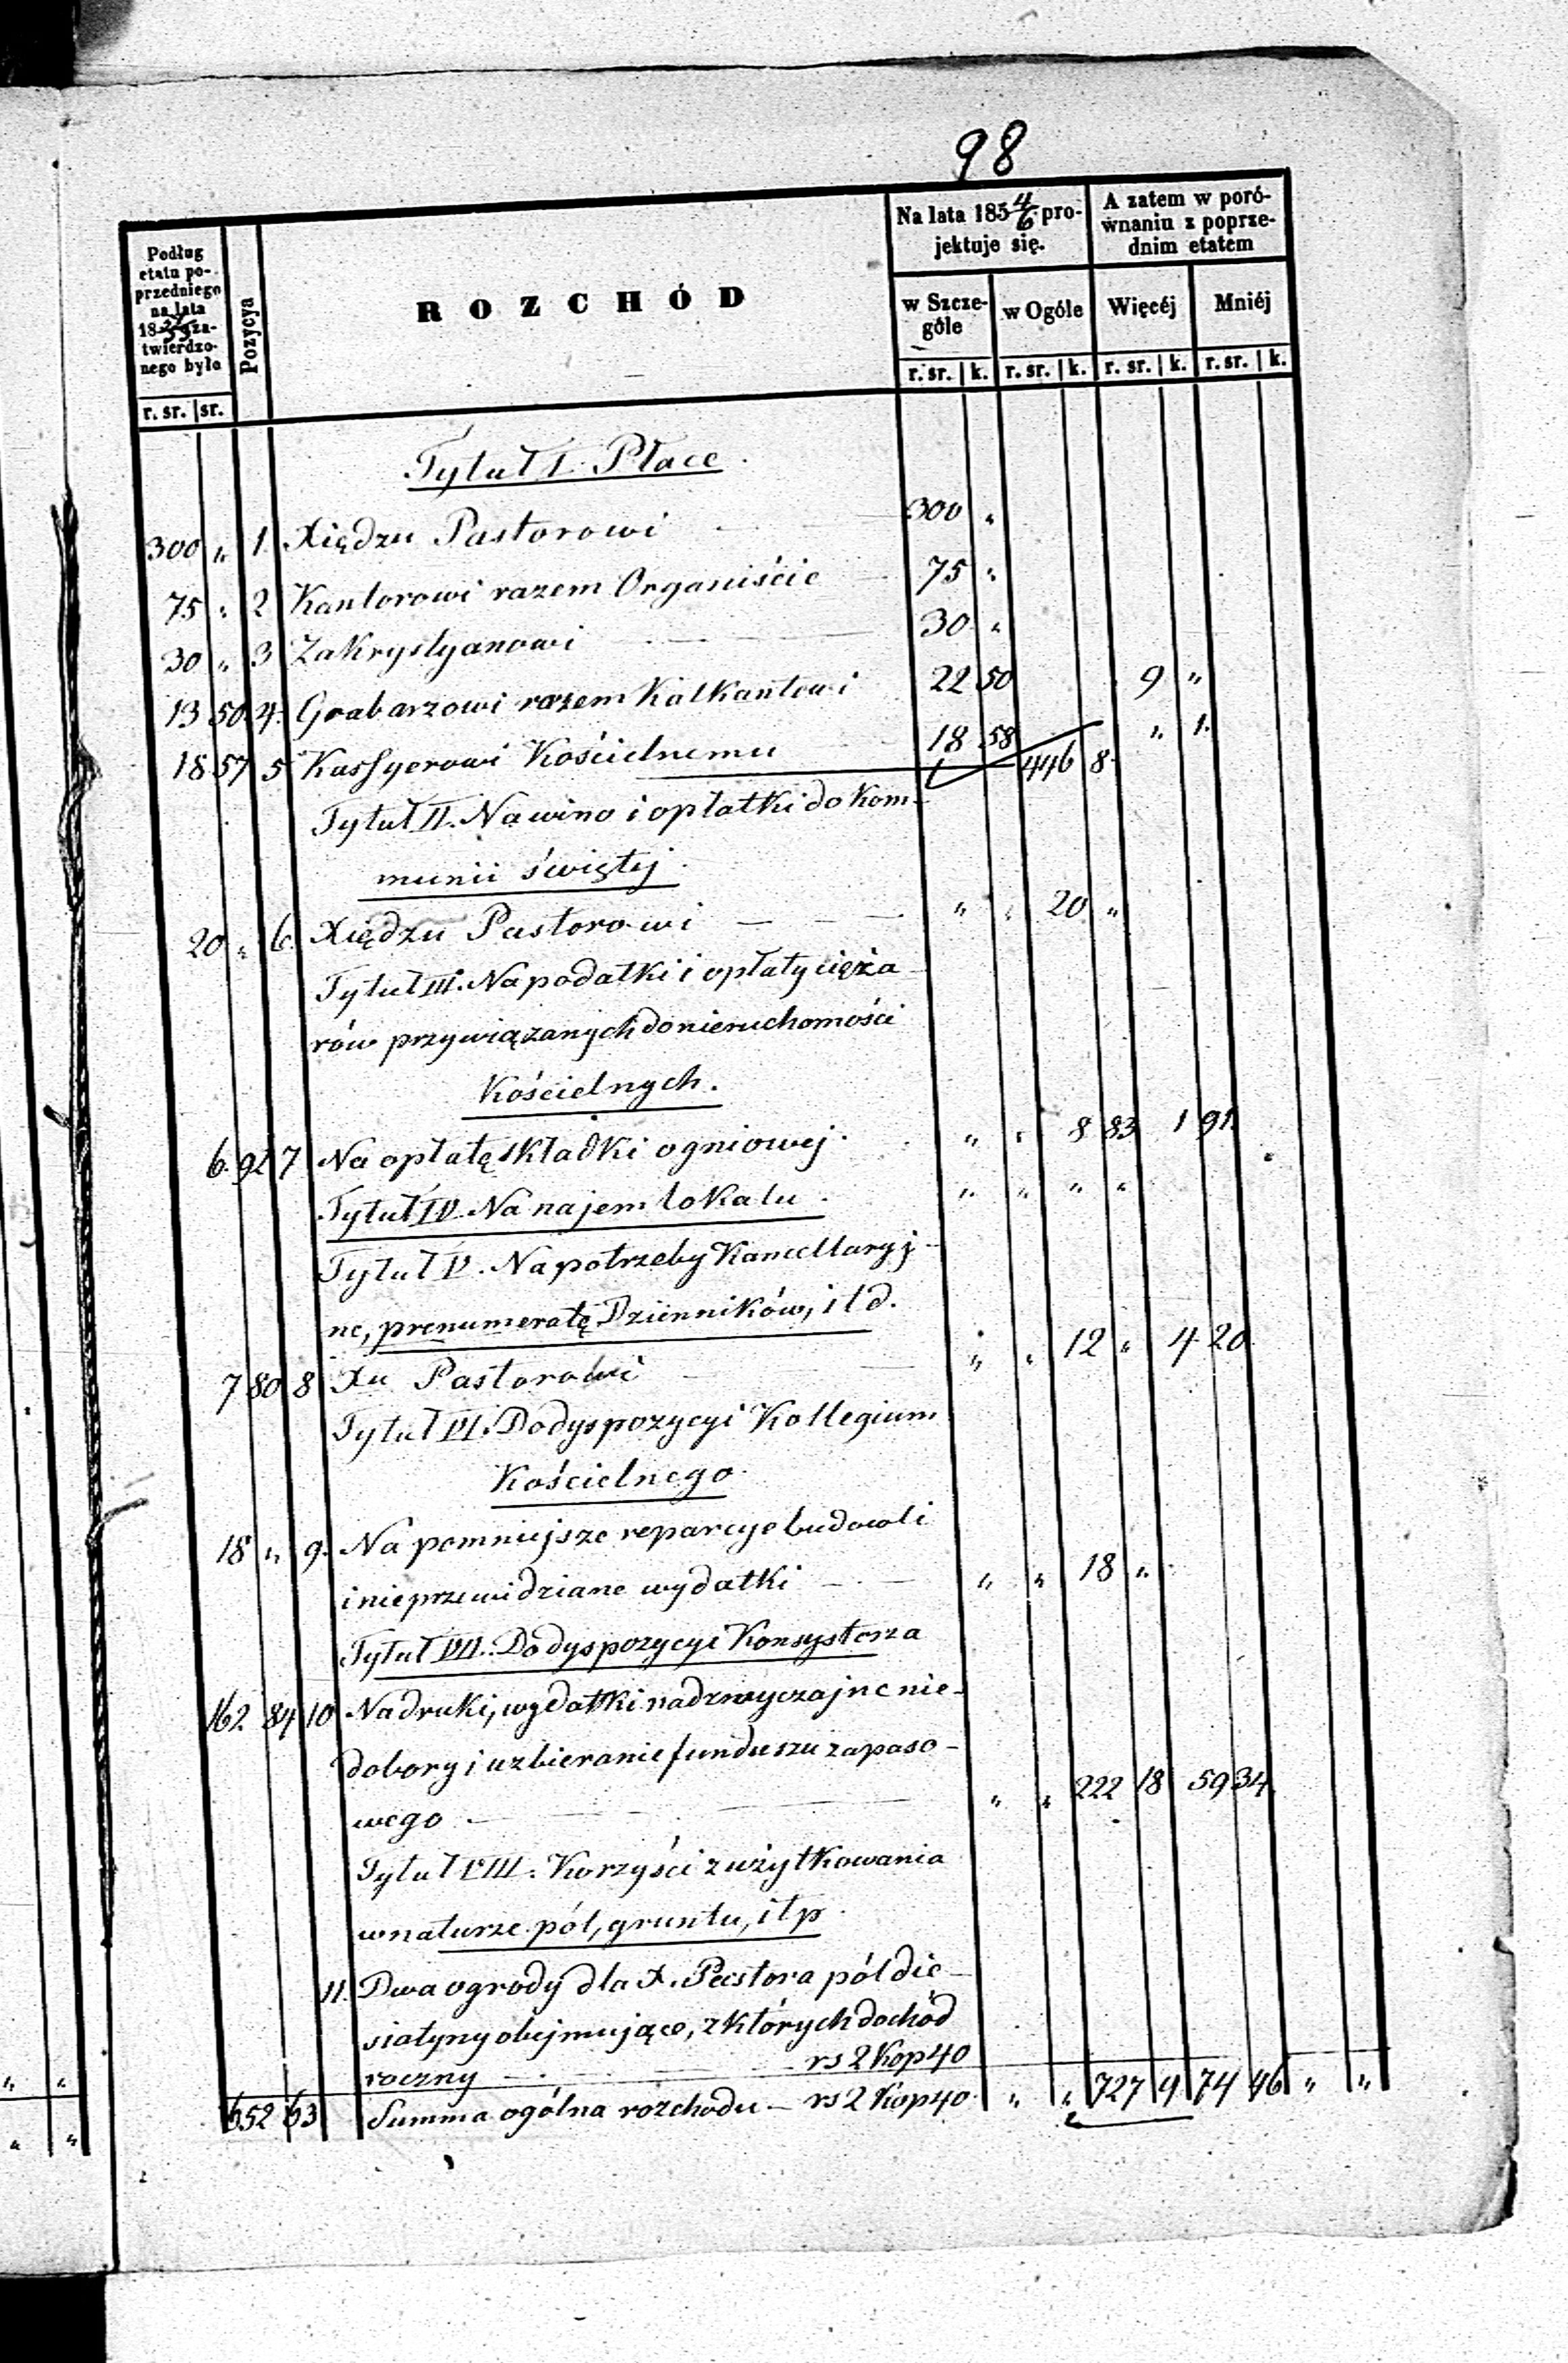 98
Podług etatu poprzedniego na lata 18 zatwierdzonego było
Pozycya
ROZCHÓD
Na lata 185 4/6 projektuje się.
A zatem w porównaniu z poprzednim etatem
w Szczególe
w Ogóle
Więcéj
Mniéj
r. sr. | sr.
r. sr. | k. r. sr. | k. r. sr. | k. r. sr. | k.
Tytuł I. Płace
300 „ 1. Xiędzu Pastorowi 300 „
75 „ 2 Kantorowi razem Organiście 75 „
30 „ 3 Zakrystyanowi 30 „
13 50 4. Grabarzowi razem Kalkantowi 22 50 9 „
18 57 5 Kassyerowi Kościelnemu 18 58 446 8 „ 1.
Tytuł II. Na wino i opłatki do kom-
munii świętej
20 „ 6. Xiędzu Pastorowi — — „ „ 20 „
Tytuł III. Na podatki i opłaty cięża-
rów przywiązanych do nieruchomości
Kościelnych.
6. 92 7 Na opłatę składki ogniowej. „ „ 8 83 1 91.
Tytuł IV. Na najem lokalu. „ „ „ „
Tytuł V. Na potrzeby Kancellaryj-
ne, prenumeratę Dzienników, itd.
7 80 8 Xu Pastorowi „ „ 12 „ 4 20
Tytuł VI. Do dyspozycyi Kollegium
Kościelnego
18 „ 9. Na pomniejsze reparcye budowli
i nieprzewidziane wydatki — „ „ 18 „
Tytuł VII. Do dyspozycyi Konsystorza
162 84 10 Na druki, wydatki nadzwyczajne nie-
dobory i uzbieranie funduszu zapaso-
wego — „ „ 222 18 59 34
Tytuł VIII. Korzyści z użytkowania
w naturze pól, gruntu, itp
11. Dwa ogrody dla X. Pastora pół die-
siatyny obejmujące, z których dochód
roczny — rs 2 kop 40
652 63 Summa ogólna rozchodu — rs 2 kop 40 „ „ 727 9 74 46 „ „